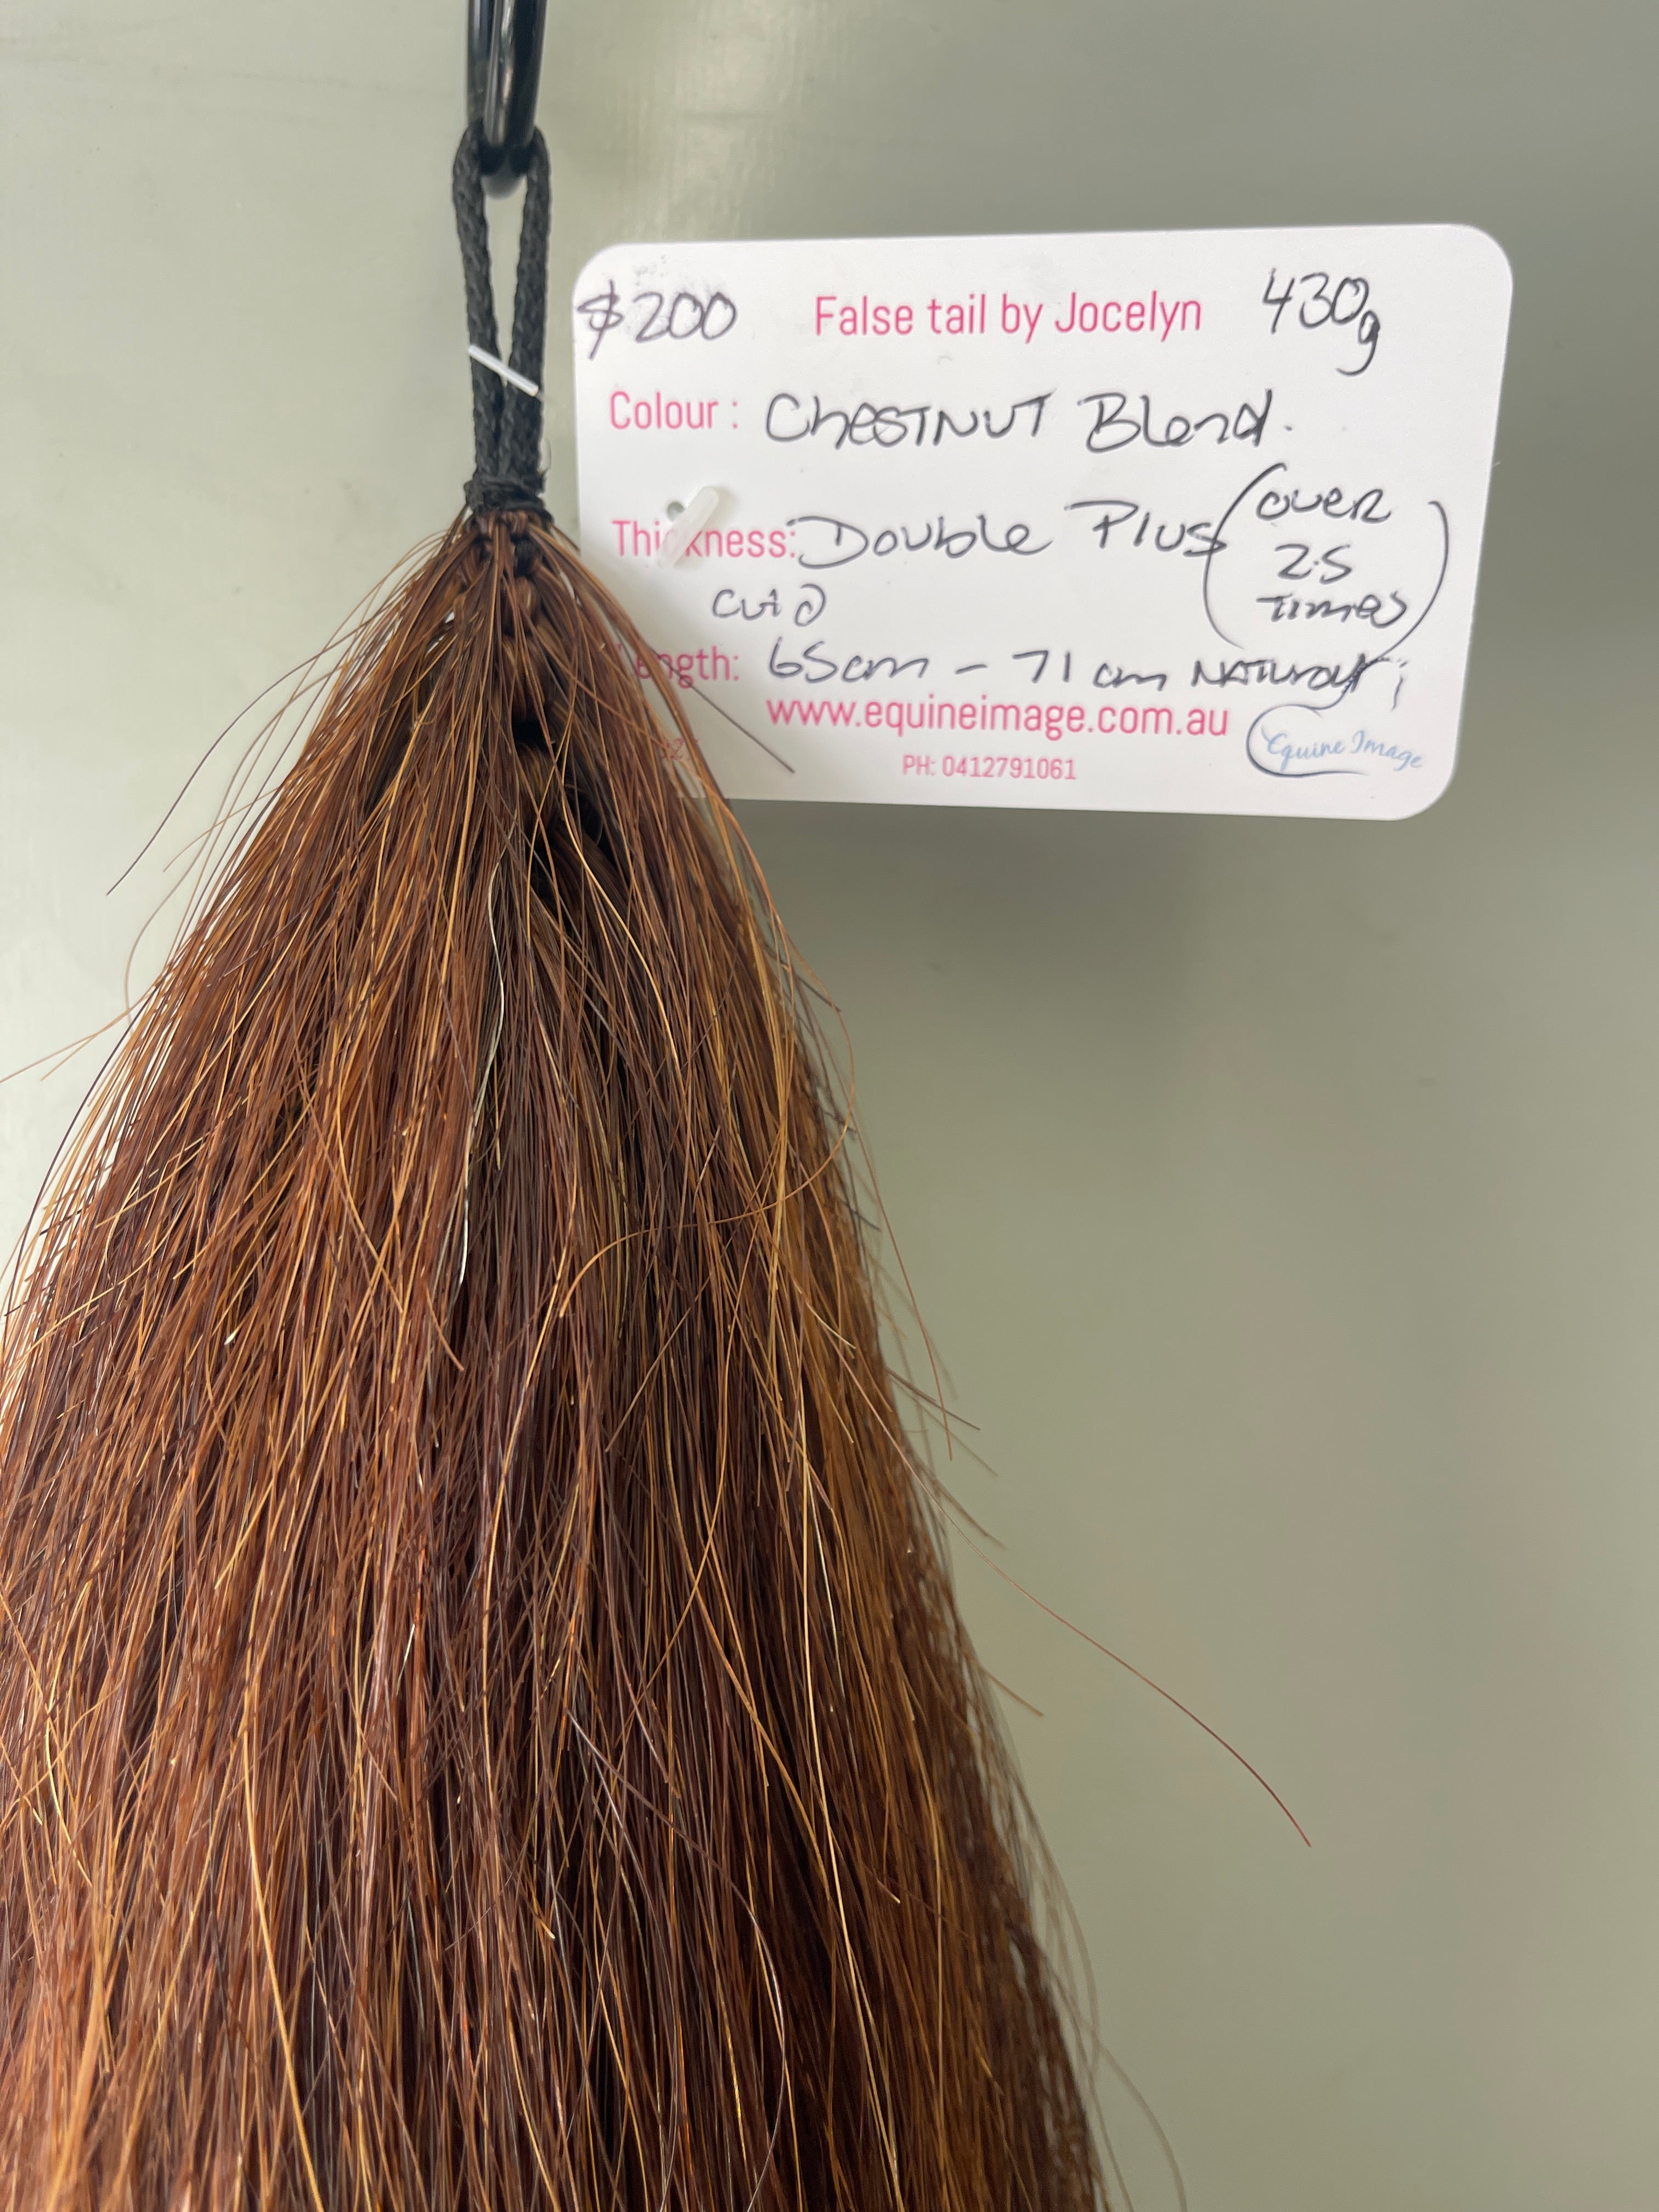 $200 False tail by Jocelyn 430g
Colour: Chestnut Blend.
Thickness: Double Plus (over 2.5 times)
cut @
Length: 65cm - 71cm Natural
www.equineimage.com.au
PH: 0412791061
Equine Image